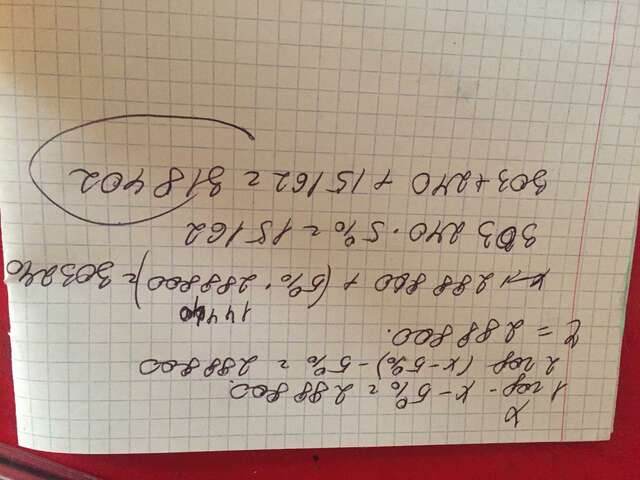 X
1 год - x - 5% = 288 800.
2 год (x-5%) - 5% = 288800
2 = 288 800.
14440
x = 288 800 + (5% · 288 800) = 303240
303 240 · 5% = 15162
303240 + 15162 = 318402